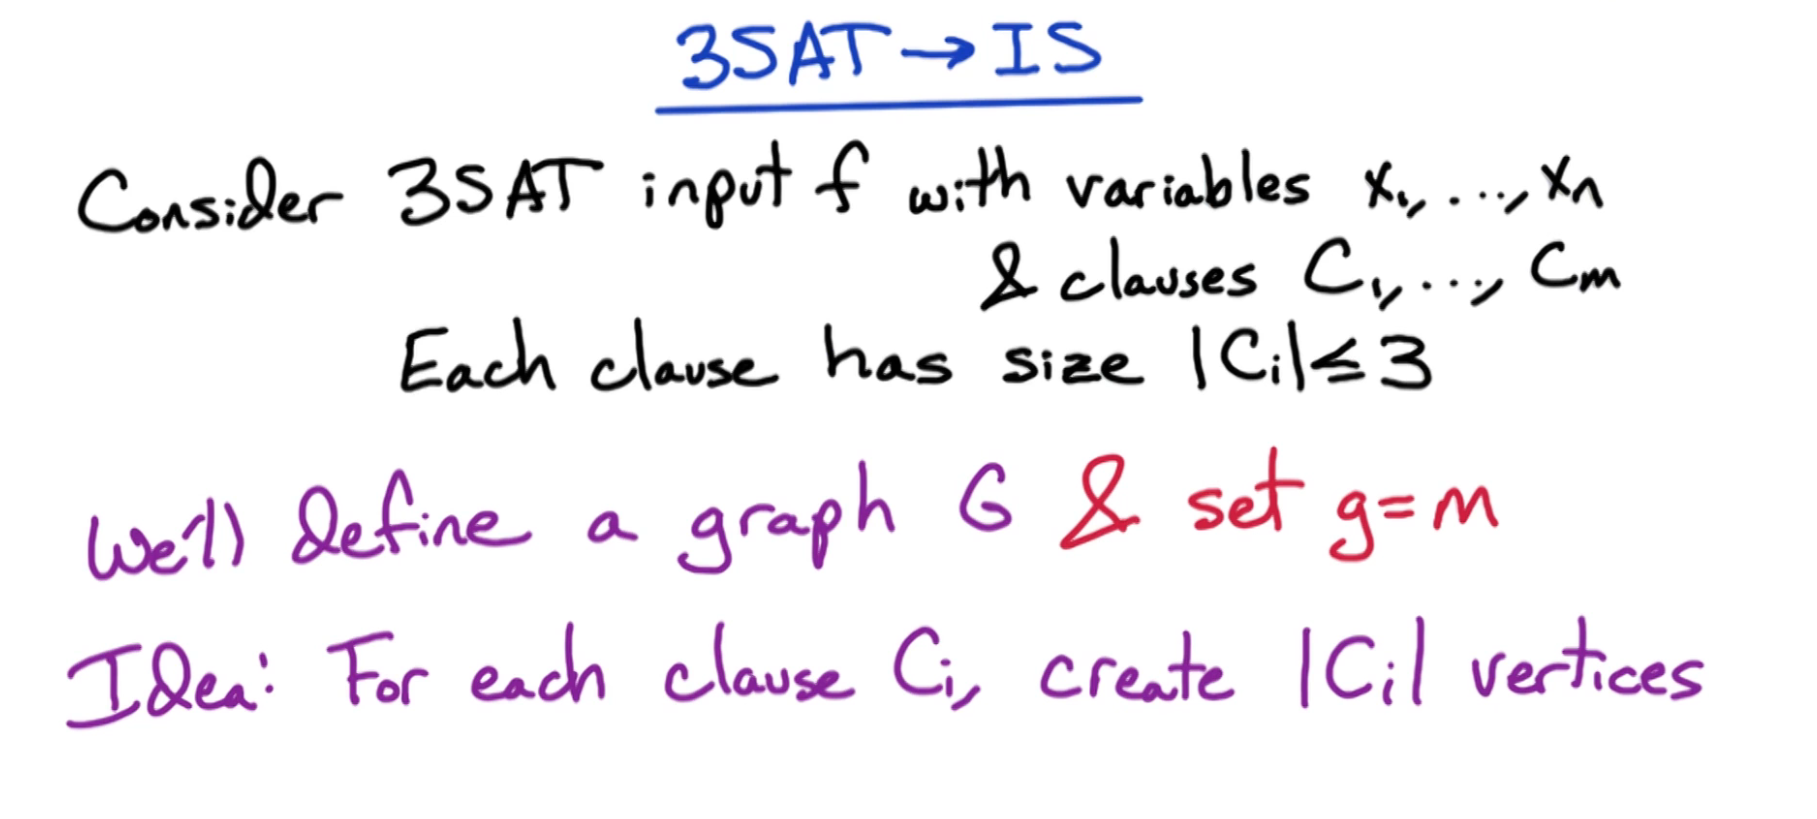 3SAT→IS
Consider 3SAT input f with variables x₁,...,xₙ
& clauses C₁,...,Cₘ
Each clause has size |Cᵢ|≤3
We'll define a graph G & set g=m
Idea: For each clause Cᵢ, create |Cᵢ| vertices